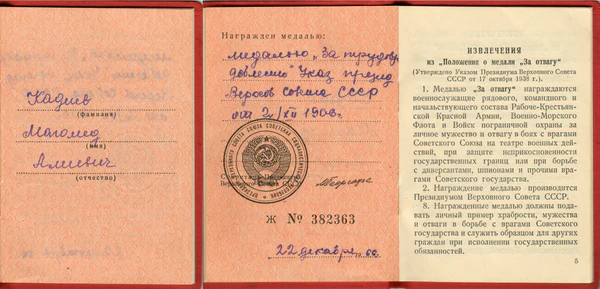 Кадиев
(фамилия)
Магомед
(имя)
Алиевич
(отчество)
Награжден медалью:
медалью „За трудов.
доблесть" Указ през.
Верхов. Союза СССР
от 2/XII 1966.
Секретарь Президиума
Верховного Совета
Ж № 382363
22 декабря 1966
ИЗВЛЕЧЕНИЯ
из „Положения о медали „За отвагу"
(Утверждено Указом Президиума Верховного Совета
СССР от 17 октября 1938 г.).
1. Медалью „За отвагу" награждаются
военнослужащие рядового, командного и
начальствующего состава Рабоче-Крестьян-
ской Красной Армии, Военно-Морского
Флота и Войск пограничной охраны за
личное мужество и отвагу в боях с врагами
Советского Союза на театре военных дей-
ствий, при защите неприкосновенности
государственных границ или при борьбе
с диверсантами, шпионами и прочими вра-
гами Советского государства.
2. Награждение медалью производится
Президиумом Верховного Совета СССР.
8. Награжденные медалью должны пода-
вать личный пример храбрости, мужества
и отваги в борьбе с врагами Советского
государства и служить образцом для других
граждан при исполнении государственных
обязанностей.
5